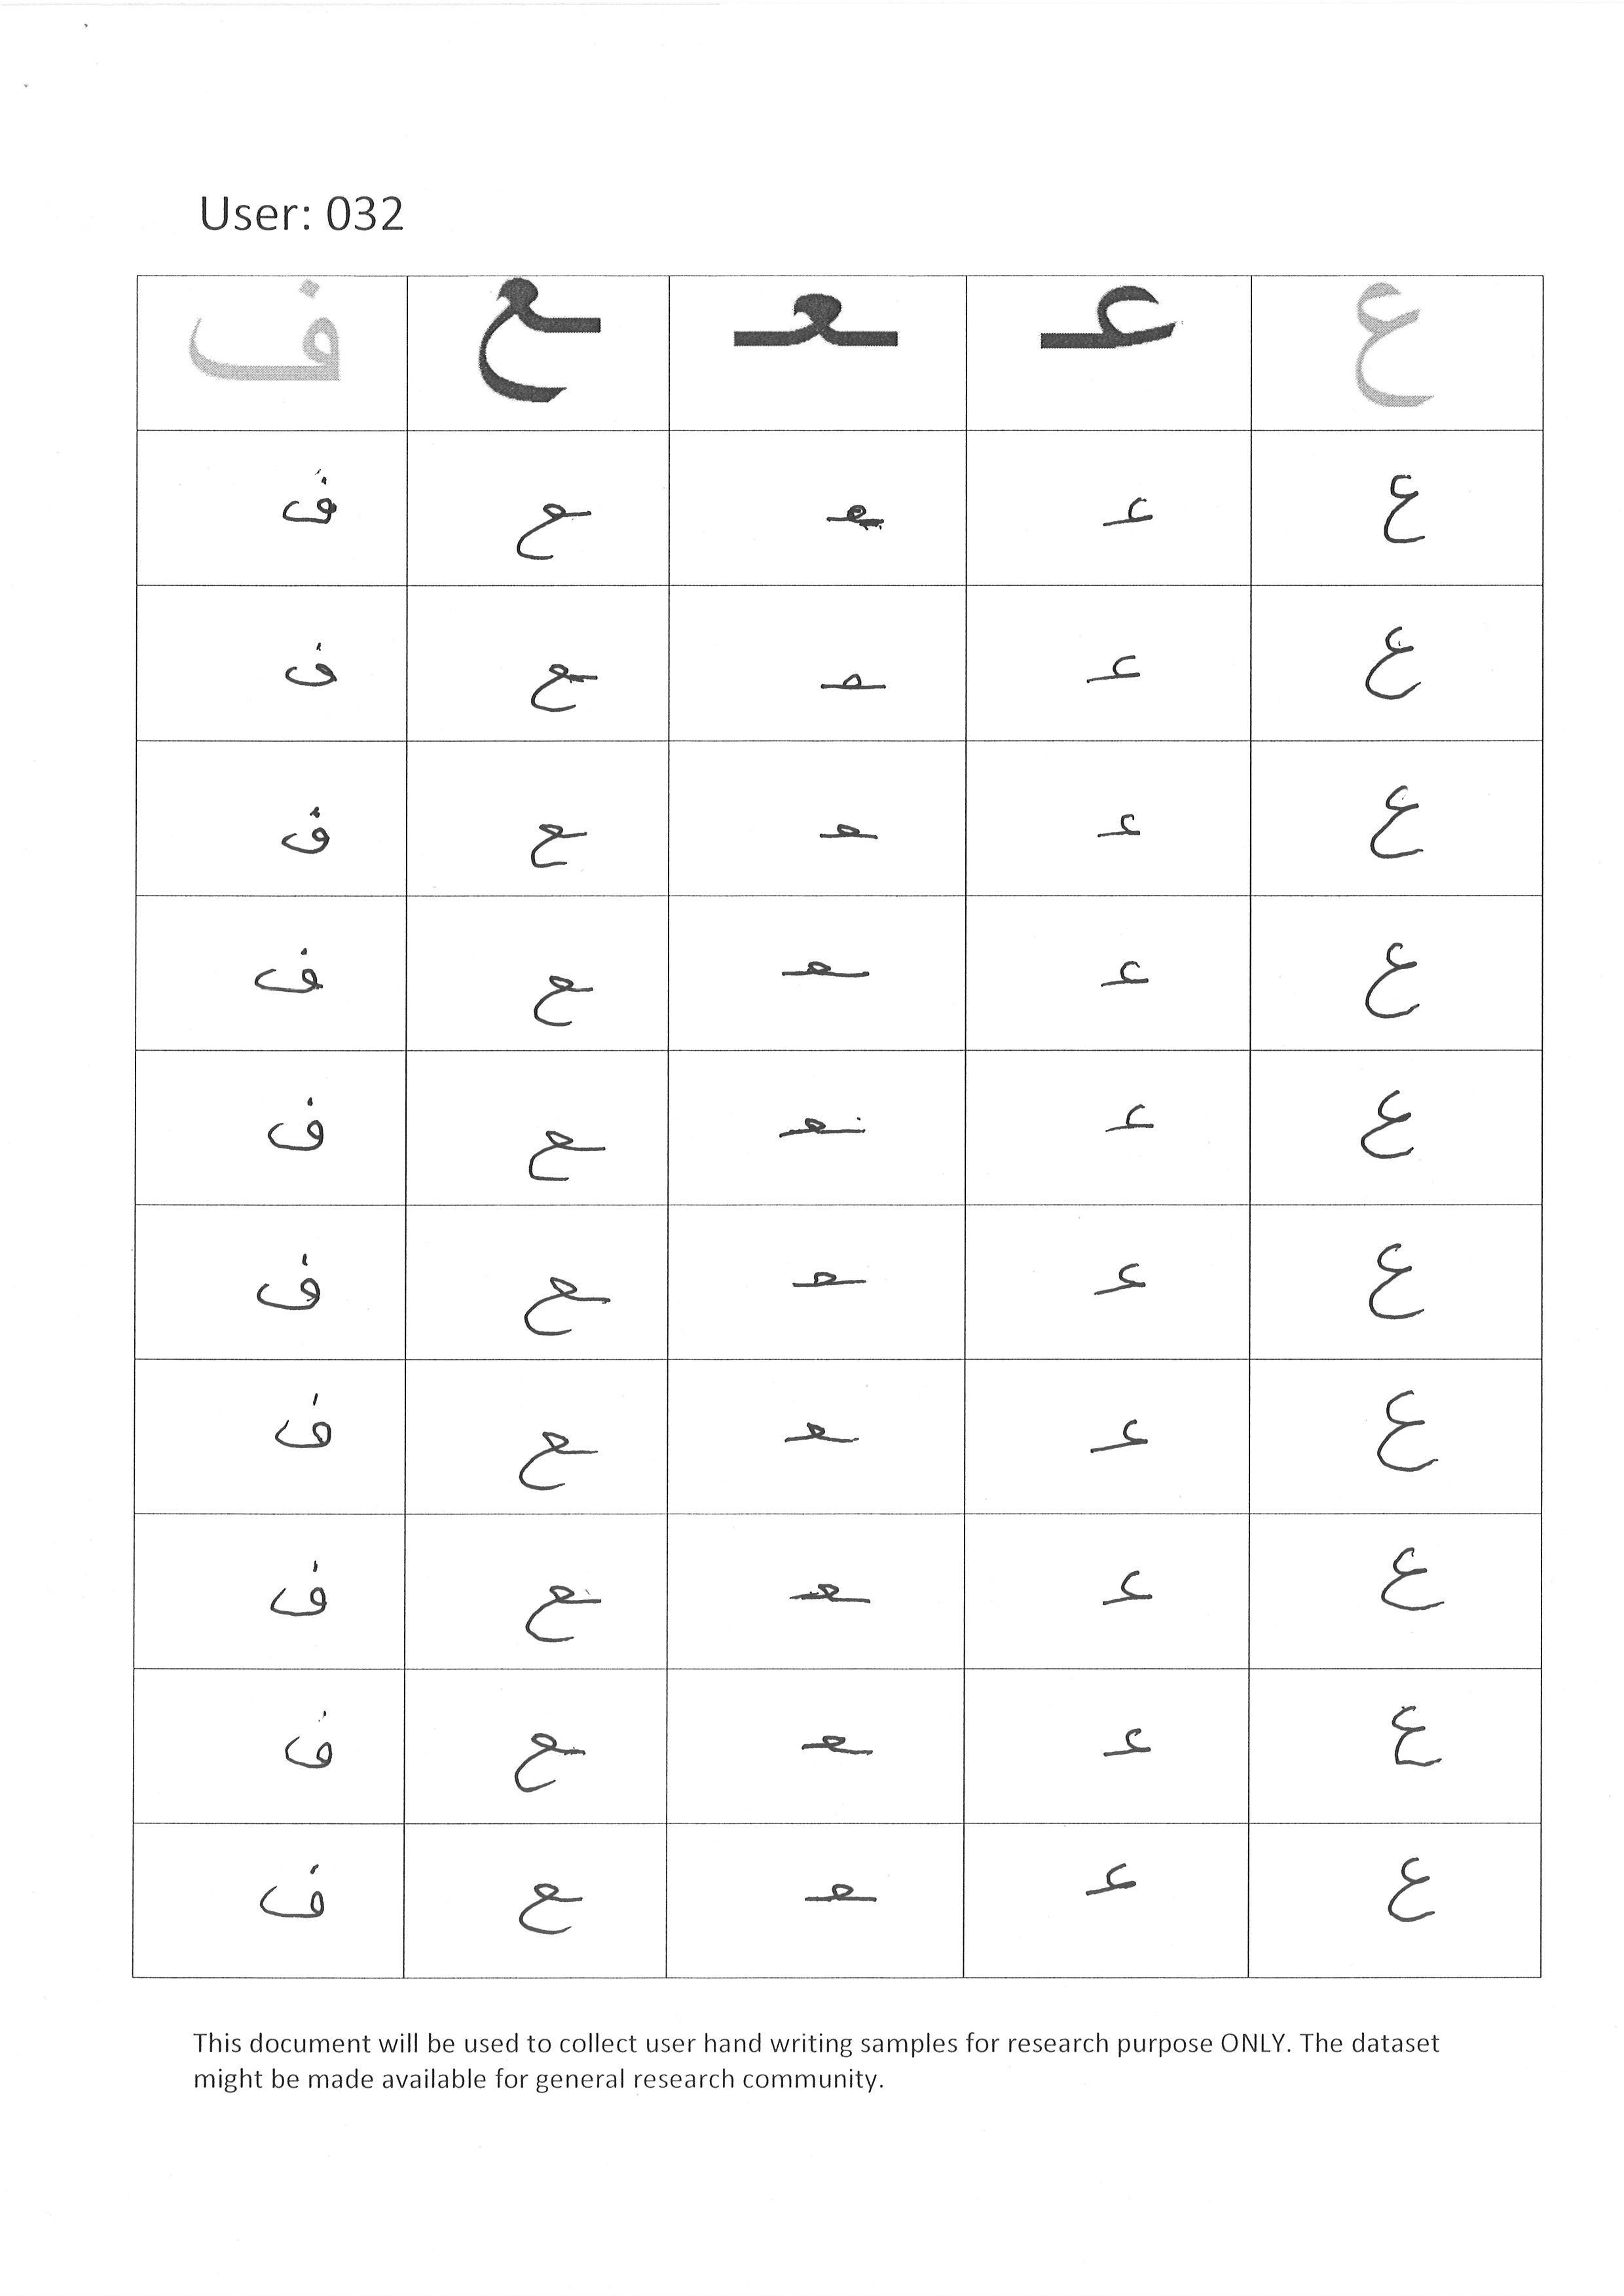 User: 032
ع عـ ـعـ ـع ف
ع عـ ـعـ ـع ف
ع عـ ـعـ ـع ف
ع عـ ـعـ ـع ف
ع عـ ـعـ ـع ف
ع عـ ـعـ ـع ف
ع عـ ـعـ ـع ف
ع عـ ـعـ ـع ف
ع عـ ـعـ ـع ف
ع عـ ـعـ ـع ف
ع عـ ـعـ ـع ف
This document will be used to collect user hand writing samples for research purpose ONLY. The dataset
might be made available for general research community.